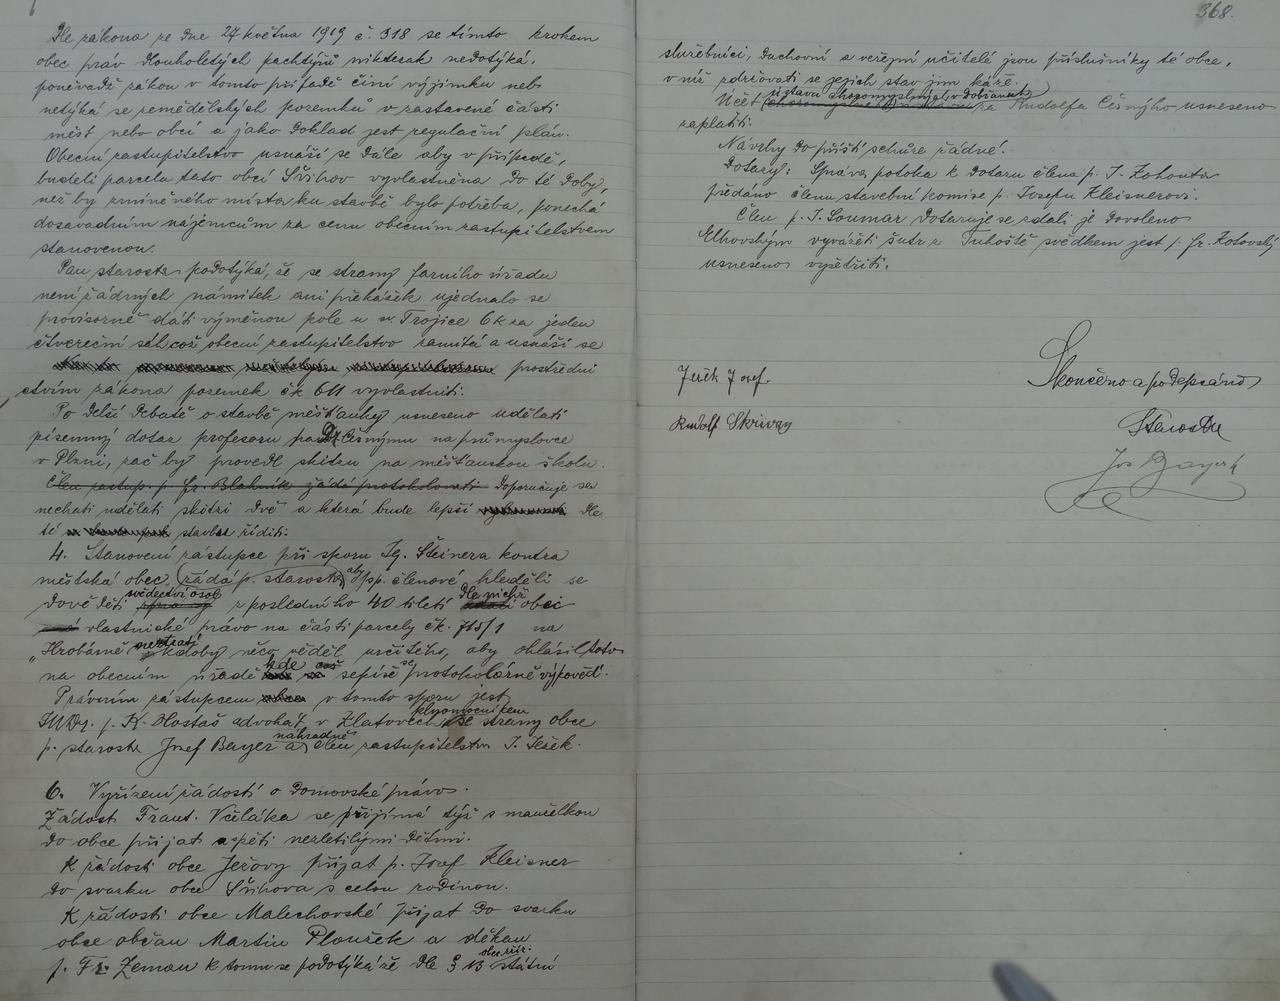 Dle zákona ze dne 27 května 1919 č. 318 se tímto krokem
obec práv dlouholetých pachtýřů nikterak nedotýká,
poněvadž zákon v tomto případě činí výjimku neb
netýká se zemědělských pozemků v zastavené části
měst nebo obcí a jako doklad jest regulační plán.
Obecní zastupitelstvo usnáší se dále aby v případě,
budeli parcela tato obcí Švihov vyvlastněna do té doby,
než by zmíněného místa ku stavbě bylo potřeba, ponechá
dosavadním nájemcům za cenu obecním zastupitelstvem
stanovenou.
Pan starosta podotýká, že se strany farního úřadu
není žádných námitek ani překážek ujednalo se
provisorně dáti výměnou pole u sv. Trojice 6 K za jeden
čtvereční sáh což obecní zastupitelstvo zamítá a usnáší se
prostředni
ctvím zákona pozemek čk 611 vyvlastniti.
Po delší debatě o stavbě měšťanky usneseno udělati
písemný dotaz profesoru panu Čišnýmu na průmyslovce
v Plzni, zač by provedl skizzu na měšťanskou školu.
Člen zastup. p. Fr. Blahník žádá protokolovati Doporučuje se
nechati udělati skizzi dvě a která bude lepší dle
té stavbu říditi.
4. Stanovení zástupce při sporu Ig. Steinera kontra
městská obec, žádá p. starosta, aby pp. členové hleděli se
dověděti svědectví osob z posledního 40 tiletí dle nichž obci
vlastnické právo na části parcely čk. 715/1 na
"Hrobárně neztratí kdoby něco věděl určitého, aby ohlásil toto
na obecním úřadě kde se sepíše protokolárně výpověď.
Právním zástupcem v tomto sporu jest
JUDr. p. K. Hostaš advokát v Klatovech plnomocníkem se strany obce
p. starosta Josef Bayer a náhradně člen zastupitelstva J. Ješek.
6. Vyřízení žádostí o domovské právo.
Žádost Frant. Včeláka se přijímá týž s manželkou
do obce přijat a pěti nezletilými dětmi.
K žádosti obce Ježovy přijat p. Josef Kleisner
do svazku obce Švihova s celou rodinou.
K žádosti obce Malechovské přijat do svazku
obce občan Martin Plouček a děkan
p. Fr. Zeman k tomu se podotýká že dle § 13 obec. zříz. státní
368.
služebníci, duchovní a veřejní učitelé jsou příslušníky té obce,
v níž zdržovati se jejich stav jim káže.
Účet ústavu choromyslných v Dobřanech za Rudolfa Čišnýho usneseno
zaplatiti.
Návrhy do příští schůze řádné.
Dotazy: Správa potoka k dotazu člena p. J. Kohouta
předáno členu stavební komise p. Josefu Kleisnerovi.
Člen p. J. Soumar dotazuje se zdali je dovoleno
Elhovským vyvážeti šutr z Tuhoště svědkem jest p. Fr. Kotovský
usneseno vyšetřiti.
Skončeno a podepsáno
Ješek Josef.
Rudolf Skrivan
Starosta
Jos Bayer